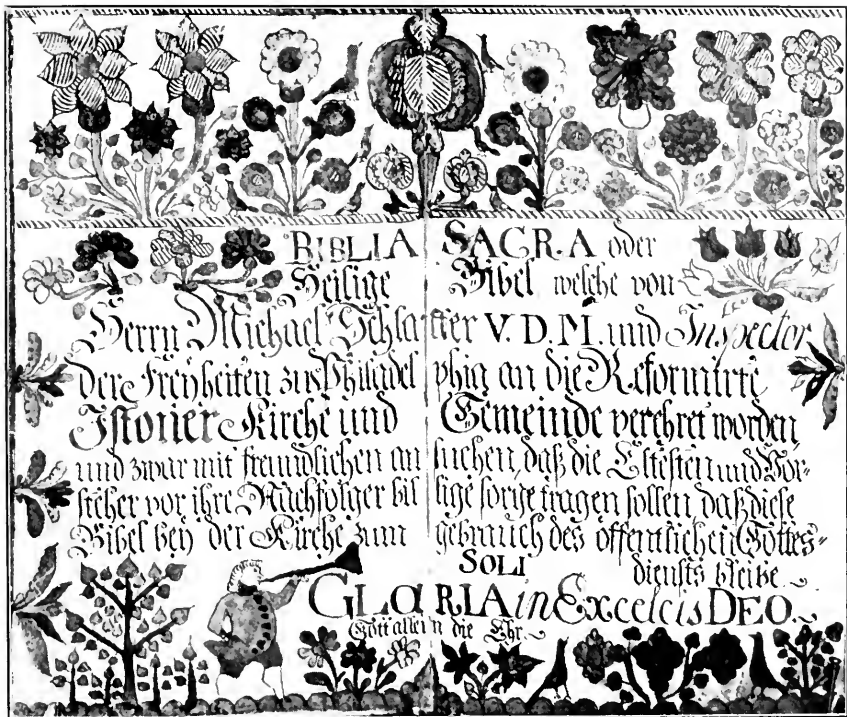 BIBLIA SACRA oder
Heilige Bibel welche von
Herrn Michael Schlatter V. D. M. und Inspector
der Freyheiten zu Philadelphia an die Reformirte
Kirche und Gemeinde verehret worden,
und zwar mit freundlichen ansuchen, daß die Eltesten und Vor-
steher vor ihre Nachfolger billige sorge tragen sollen, daß diese
Bibel bey der Kirche zum gebrauch des öffentlichen Gottes-
SOLI diensts bleibe.
GLORIA in Excelcis DEO.
Gott allein die Ehr.